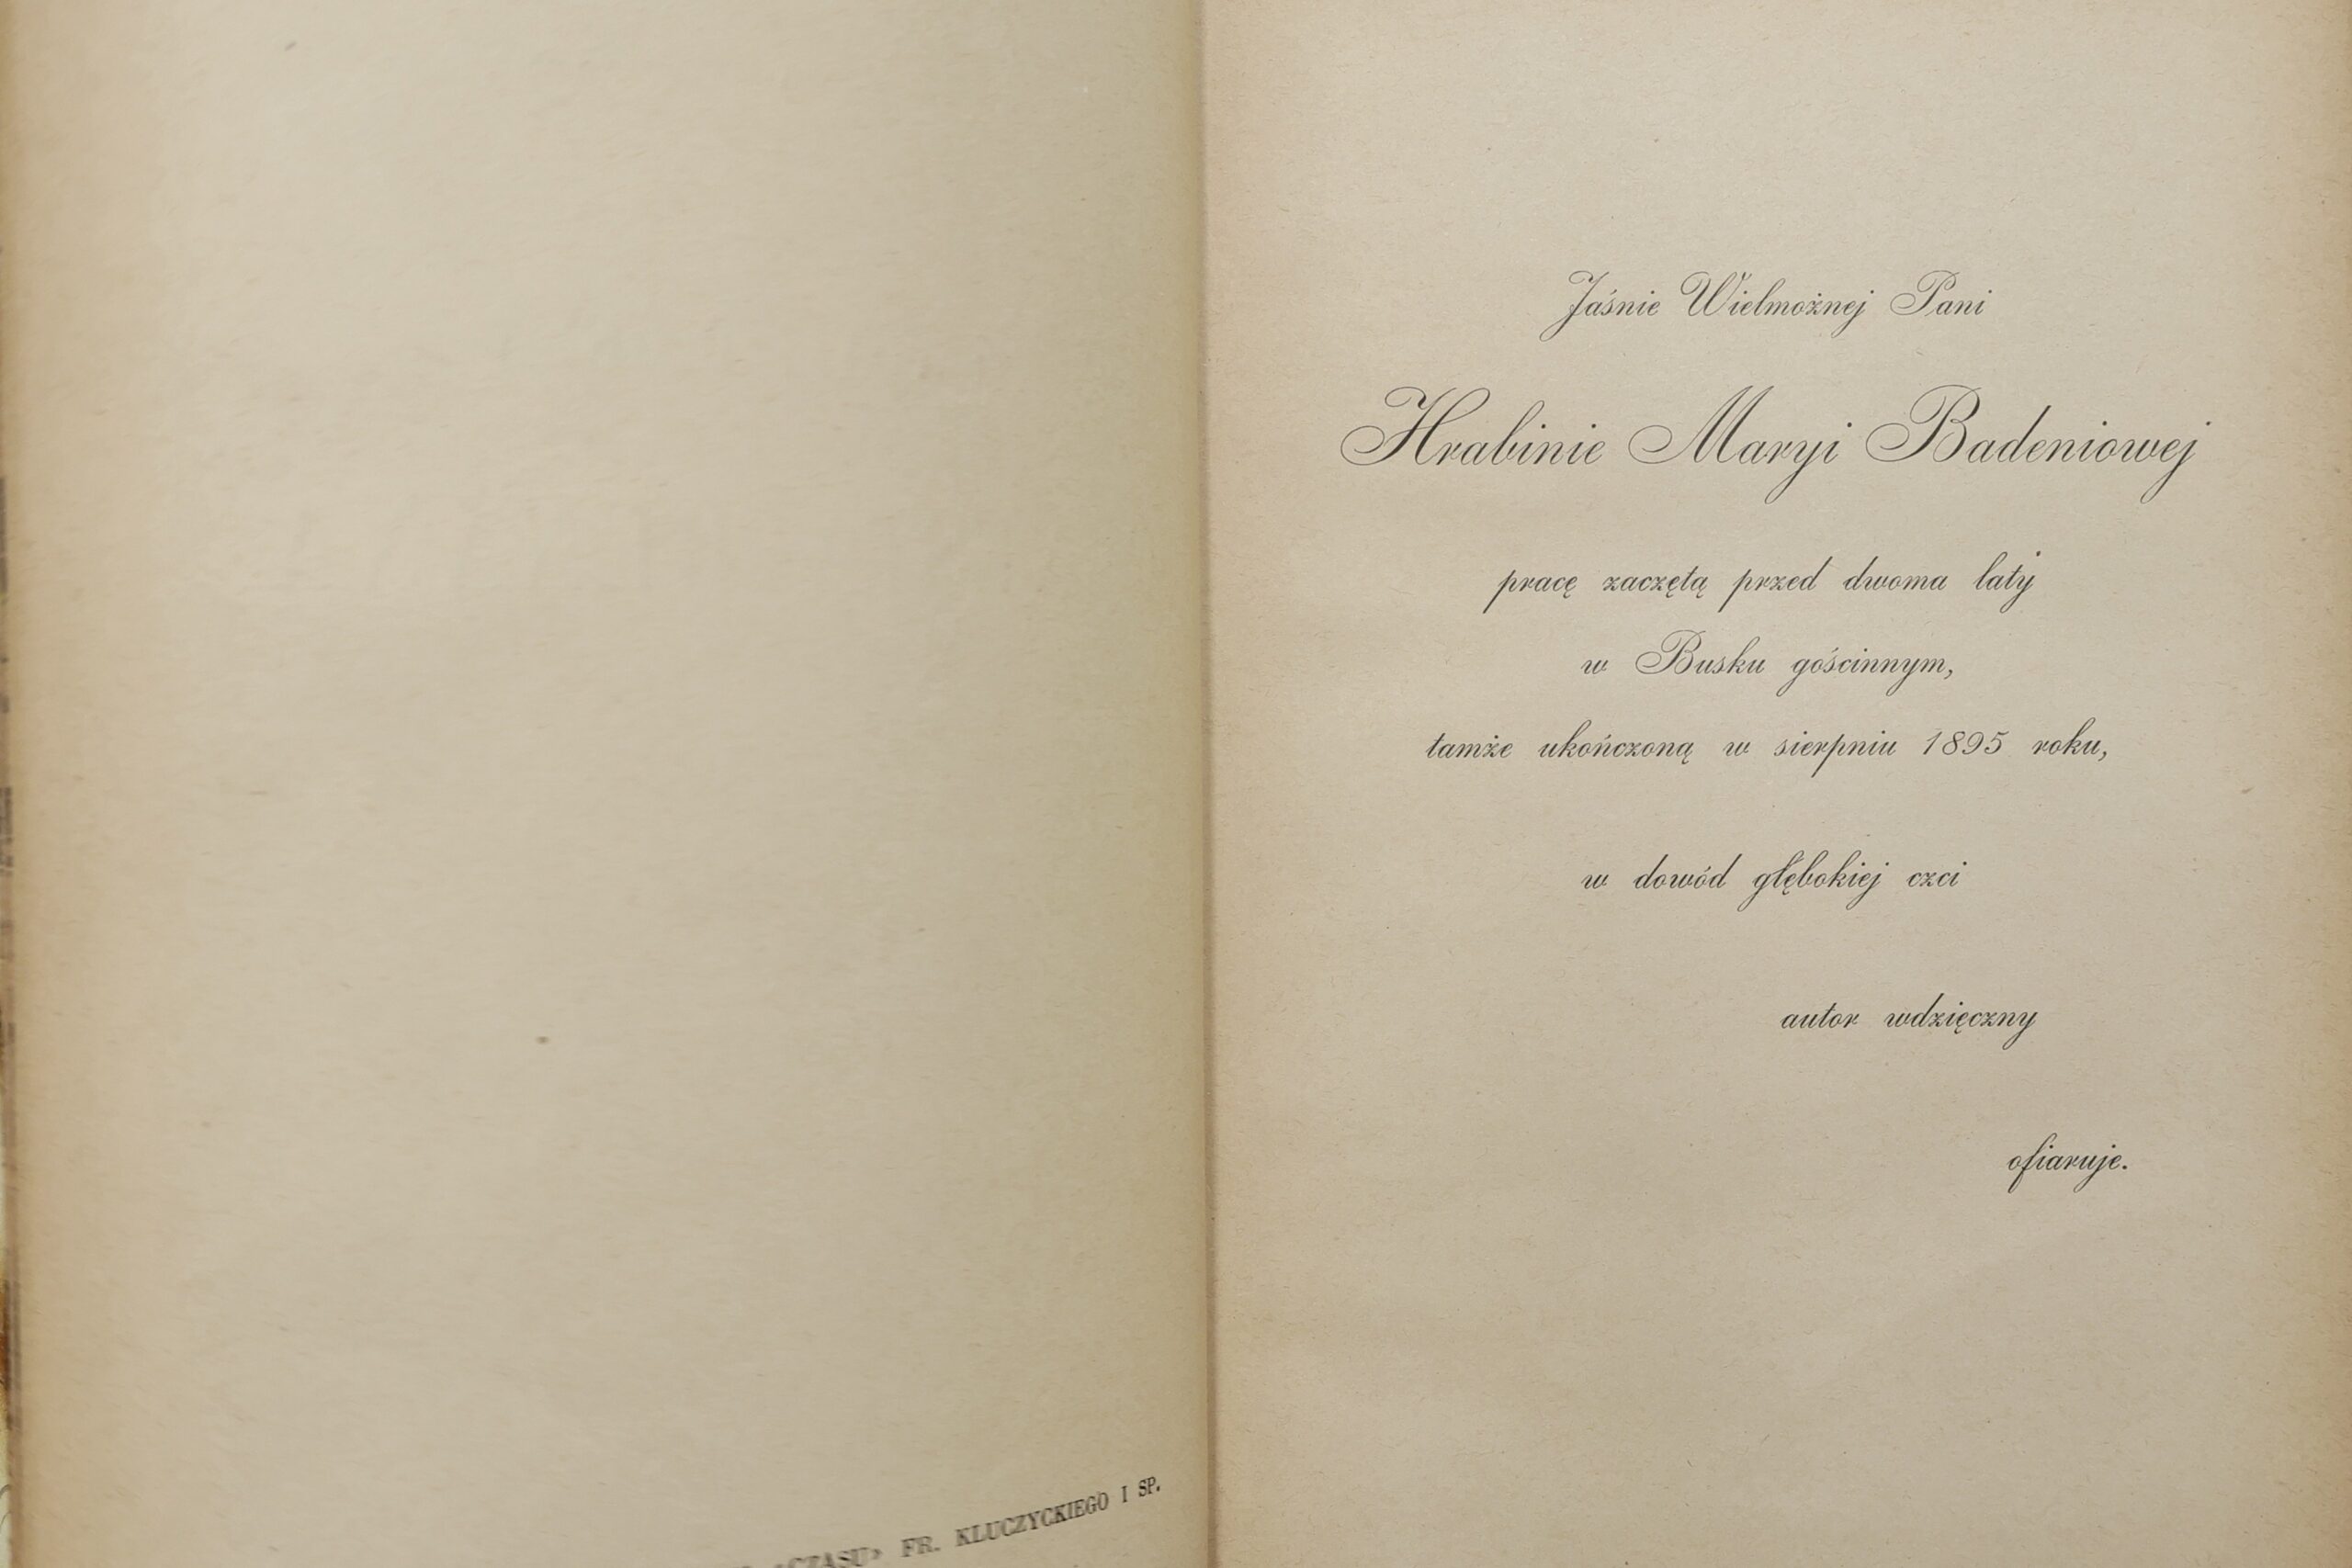 «CZASU» FR. KLUCZYCKIEGO I SP.
Jaśnie Wielmożnej Pani
Hrabinie Maryi Badeniowej
pracę zaczętą przed dwoma laty
w Busku gościnnym,
tamże ukończoną w sierpniu 1895 roku,
w dowód głębokiej czci
autor wdzięczny
ofiaruje.